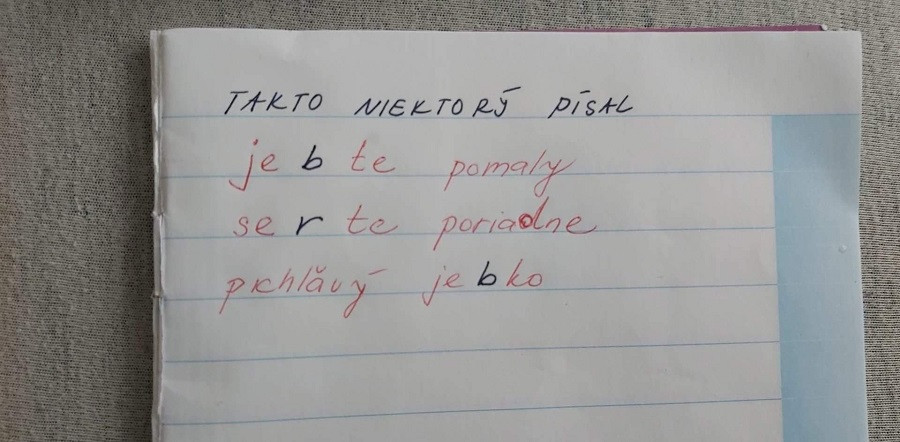 TAKTO NIEKTORÝ PÍSAL
je b te pomaly
se r te poriadne
pichlăvý je b ko